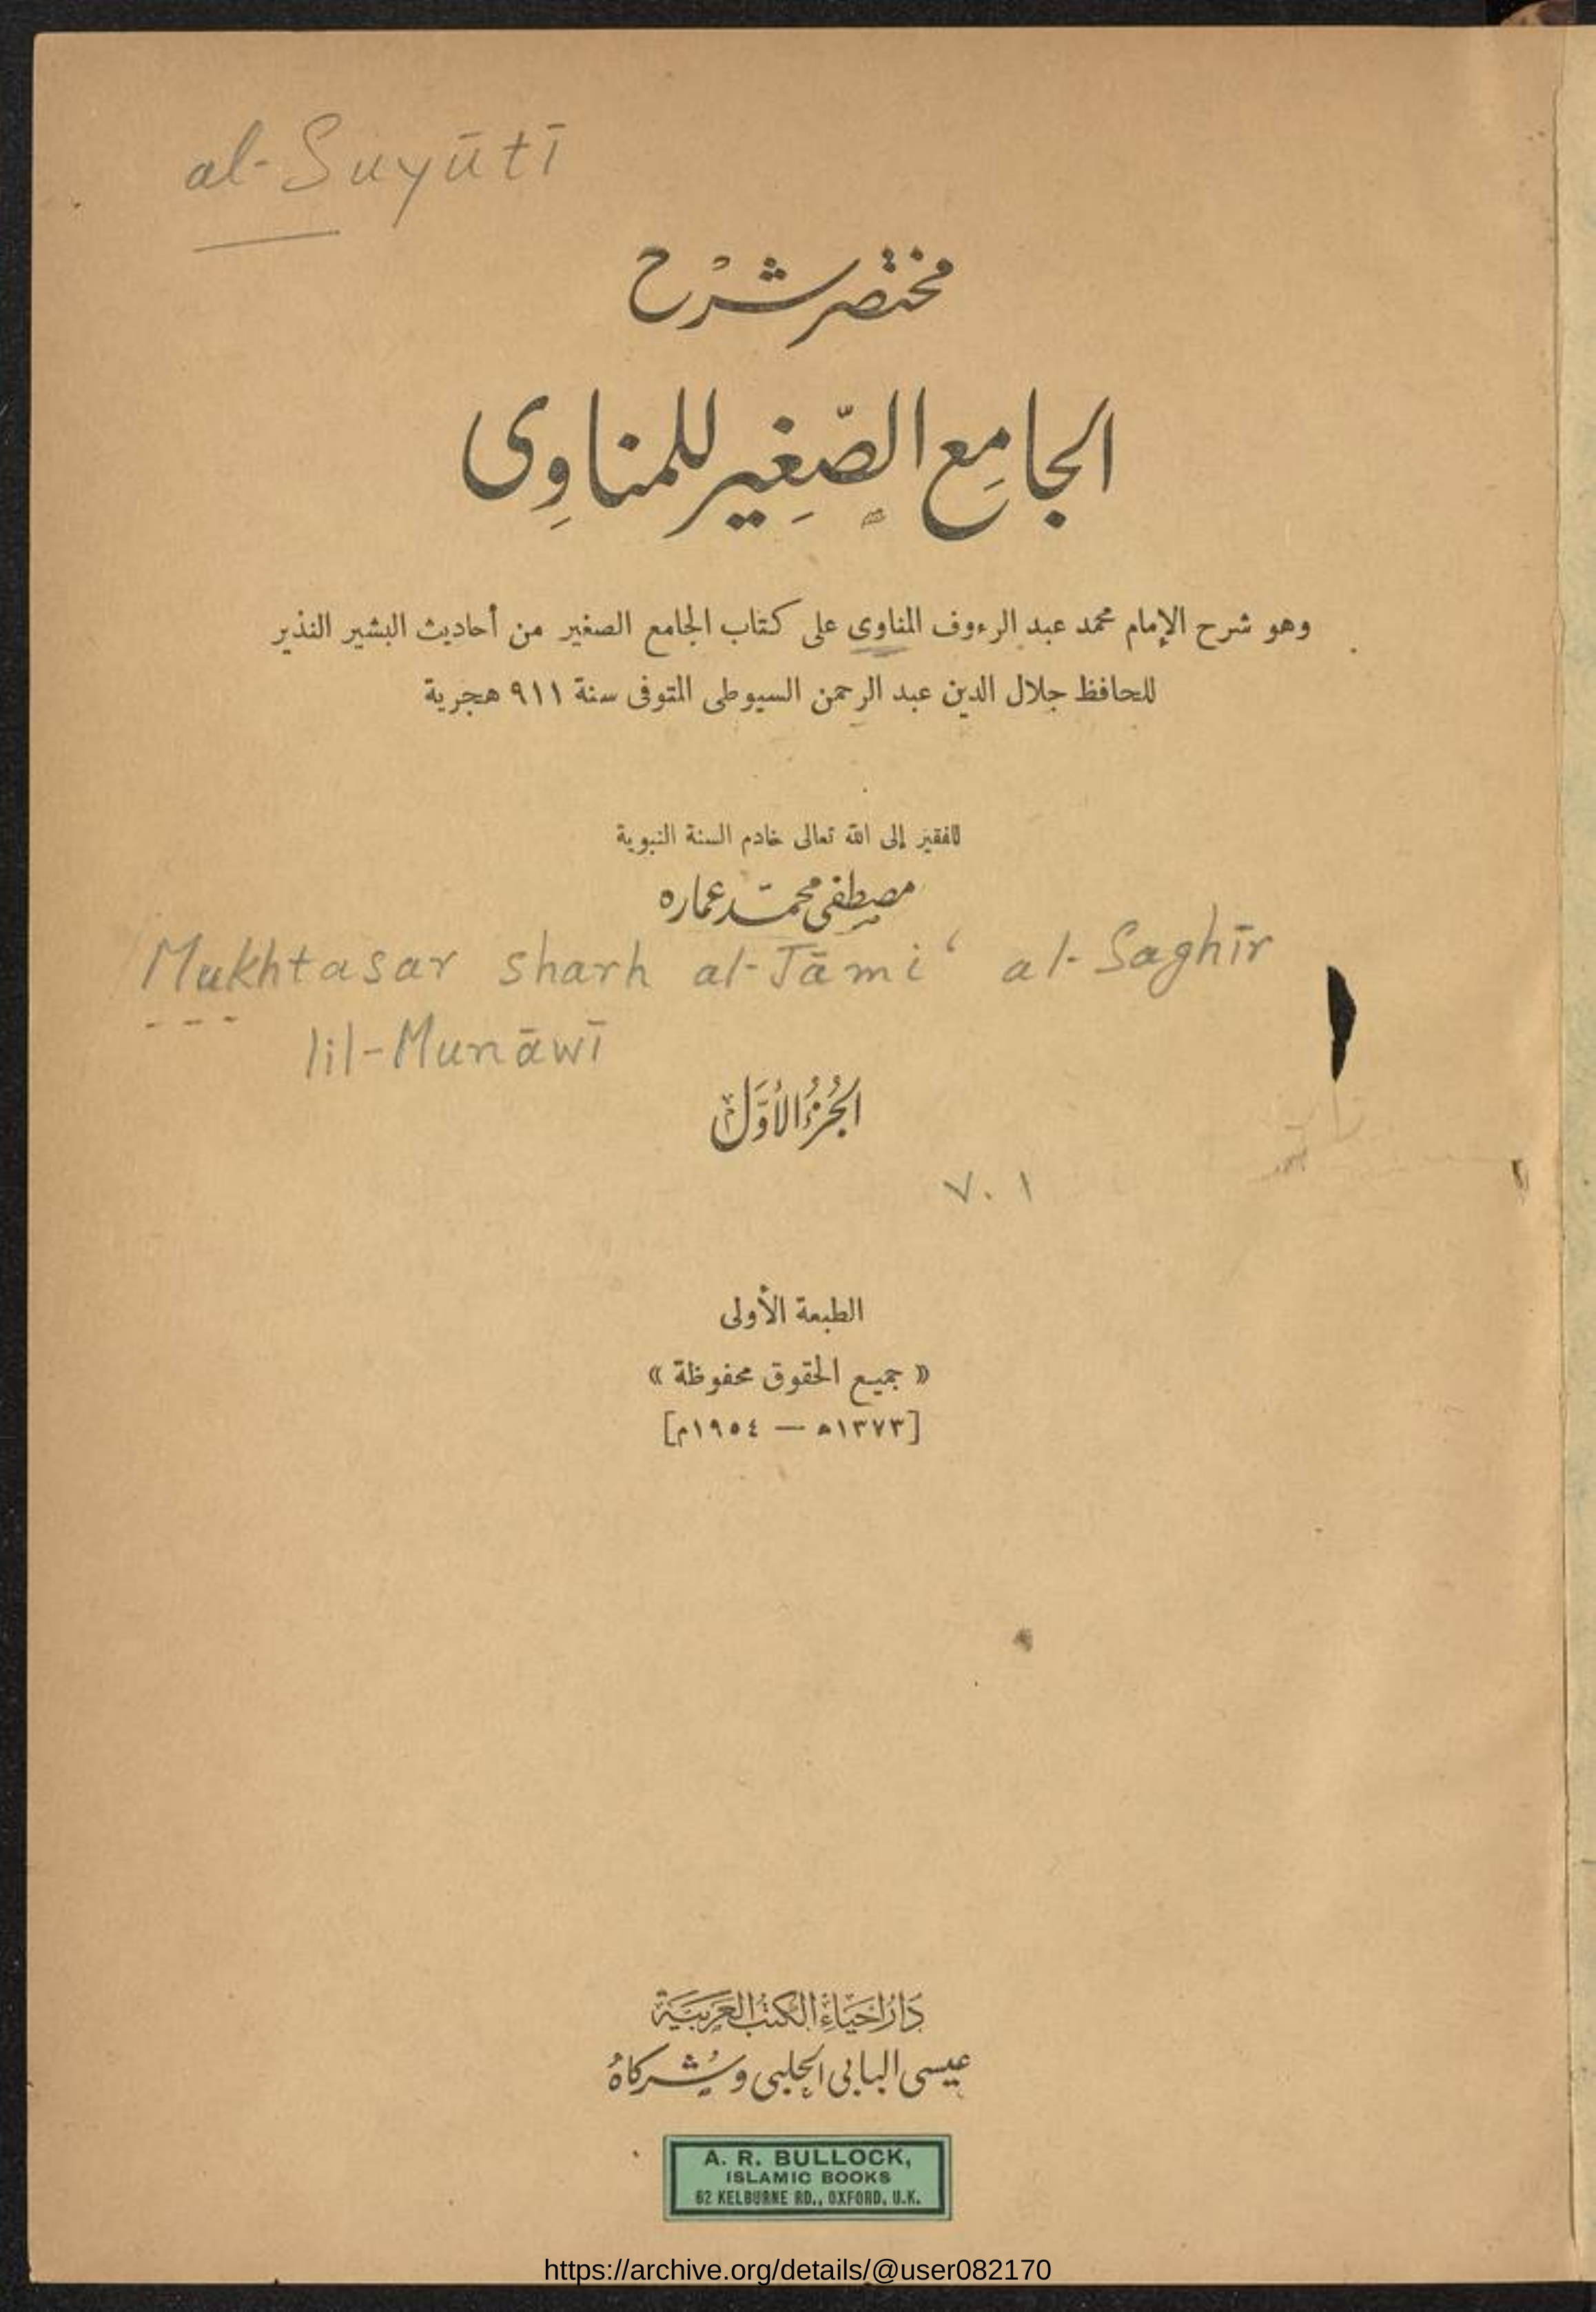 al-Suyūtī
مختصر شرح
الجامع الصغير للمناوى
وهو شرح الإمام محمد عبد الرءوف المناوى على كتاب الجامع الصغير من أحاديث البشير النذير
للحافظ جلال الدين عبد الرحمن السيوطى المتوفى سنة ٩١١ هجرية
للفقير إلى الله تعالى خادم السنة النبوية
مصطفى محمد عماره
Mukhtasar sharh al-Jāmi‘ al-Saghīr
lil-Munāwī
الجزء الأول
V. 1
الطبعة الأولى
« جميع الحقوق محفوظة »
[١٣٧٣ه — ١٩٥٤م]
دار إحياء الكتب العربية
عيسى البابى الحلبى وشركاه
A. R. BULLOCK,
ISLAMIC BOOKS
62 KELBURNE RD., OXFORD, U.K.
https://archive.org/details/@user082170